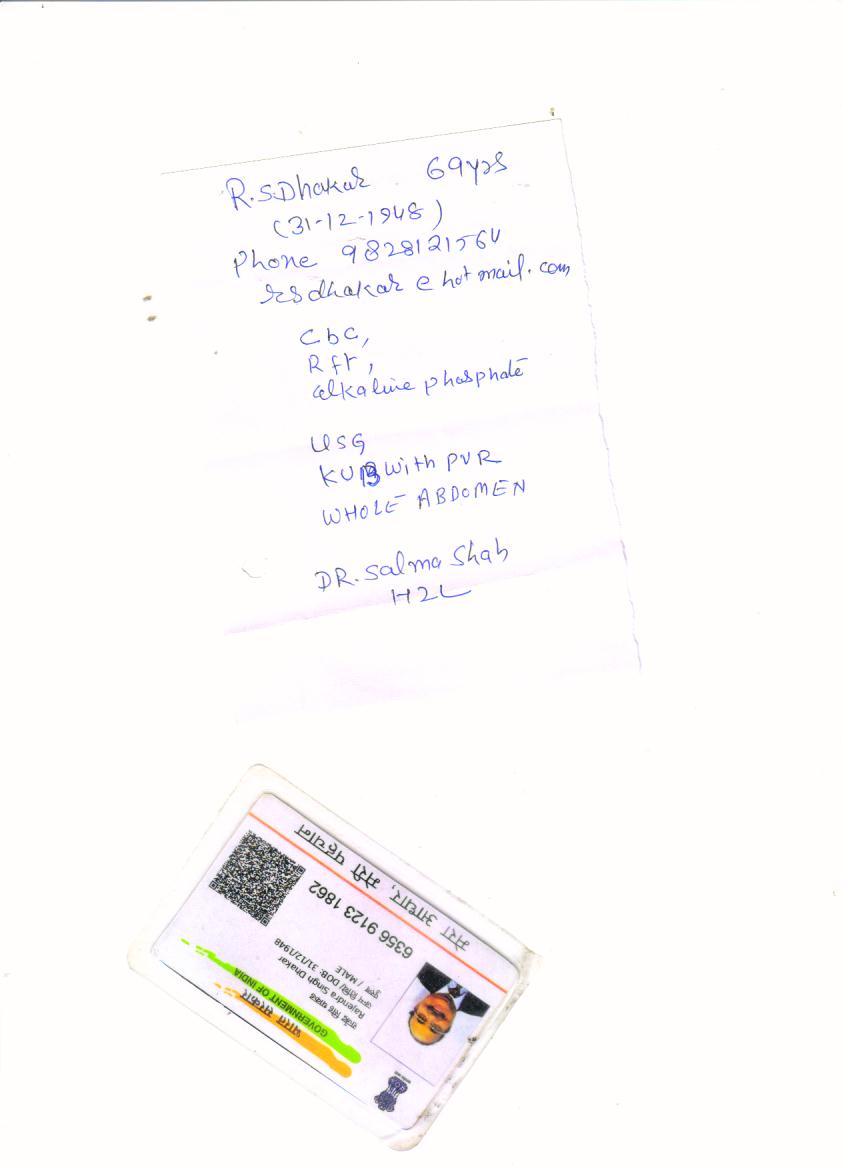 R.S.Dhakar 69yrs
(31-12-1948)
Phone 9828121564
rsdhakar@hotmail.com
Cbc,
Rft,
alkaline phosphate
USG
KUB with PVR
WHOLE ABDOMEN
DR. Salma Shah
H2L
भारत सरकार
GOVERNMENT OF INDIA
Rajendra Singh Dhakar
जन्म तिथि/ DOB: 31/12/1948
पुरुष / MALE
6356 9123 1862
मेरा आधार, मेरी पहचान